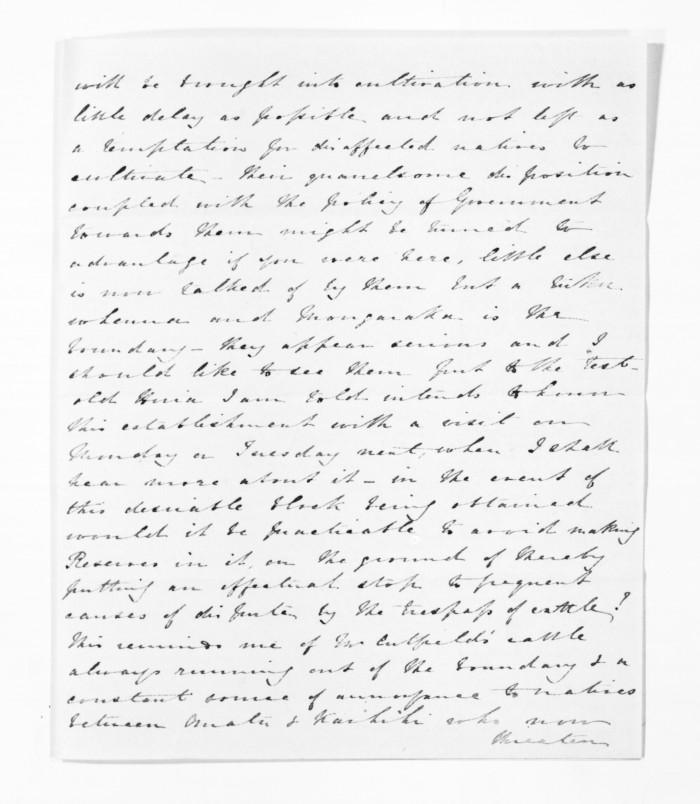 will be brought into cultivation with as
little delay as possible and not left as
a temptation for disaffected natives to
cultivate - their quarrelsome disposition
coupled with the policy of Government
towards them might be turned to
advantage if you were here, little else
is now talked of by them but a
whenua and Mangaraka is the
boundary - they appear serious and I
should like to see them put to the test -
old Huia I am told intends to honor
this establishment with a visit on
Monday or Tuesday next, when I shall
hear more about it - in the event of
this desirable block being obtained
would it be practicable to avoid making
Reserves in it, on the ground of thereby
putting an effectual stop to frequent
causes of dispute by the trespass of cattle?
This reminds me of Mr cattle
always running out of the boundary & a
constant source of annoyance to natives
between Omata & Kaihihi who now
threaten